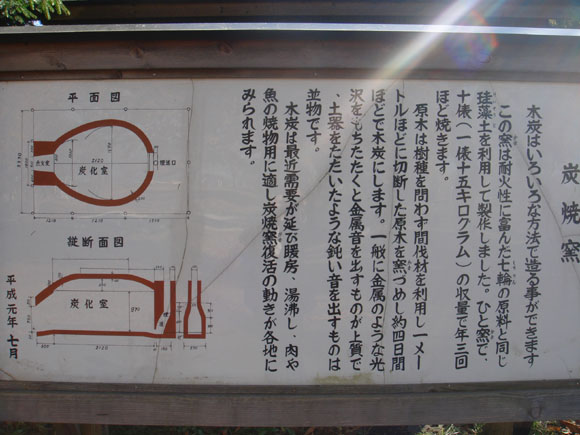 炭焼窯
木炭はいろいろな方法で造る事ができます
この窯は耐火性に富んだ七輪の原料と同じ
珪藻土を利用して製作しました。ひと窯で、
十俵（一俵十五キログラム）の収量で年三回
ほど焼きます。
原木は樹種を問わず間伐材を利用し一メー
トルほどに切断した原木を窯づめし約四日間
ほどで木炭にします。一般に金属のような光
沢をもちたたくと金属音を出すものが上質で
、土器をたたいたような鈍い音を出すものは
並物です。
木炭は最近需要が延び暖房、湯沸し、肉や
魚の焼物用に適し炭焼窯復活の動きが各地に
みられます。
平面図
炭化室
2120
縦断面図
炭化室
平成元年七月